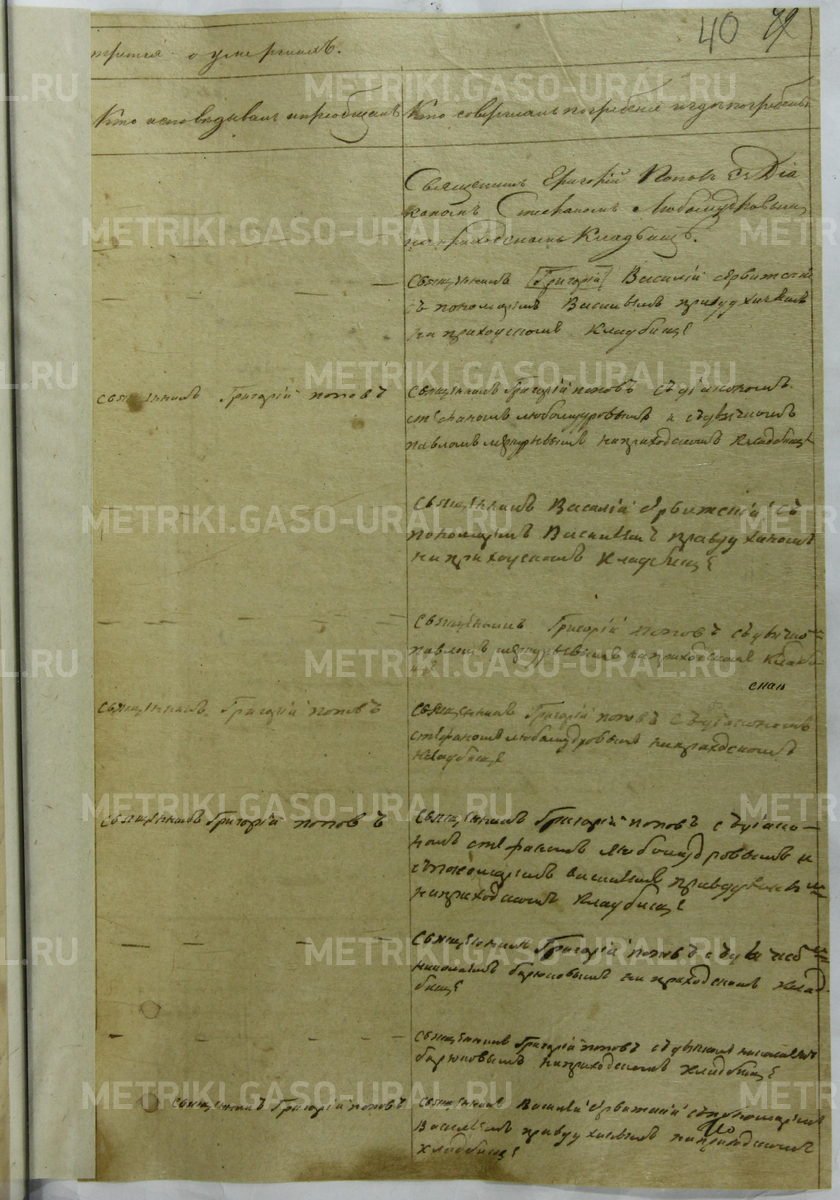 40
третiя о умершихъ.
Кто исповѣдывалъ и прiобщалъ
Кто совершалъ погребенiе и гдѣ погребены
Священникъ Григорiй Поповъ съ Дiа
кономъ Стефаномъ Любомудровымъ
на приходскомъ Кладбищѣ.
священникъ Григорiй Василiй
съ пономаремъ Василiемъ
на приходскомъ кладбищѣ
священникъ Григорiй поповъ
священникъ Григорiй поповъ съ дiакономъ
стефаномъ любомудровымъ и съ дьячкомъ
павломъ на приходскомъ кладбищѣ
священникъ Василiй съ
пономаремъ Василiемъ
на приходскомъ кладбищѣ
священникъ Григорiй поповъ съ дьячко
павломъ на приходскомъ кладби
скан
священникъ Григорiй поповъ
священникъ Григорiй поповъ съ дiакономъ
стефаномъ любомудровымъ на приходскомъ
кладбищѣ
священникъ Григорiй поповъ
священникъ Григорiй поповъ съ дiако
номъ стефаномъ любомудровымъ и
съ пономаремъ василiемъ
на приходскомъ кладбищѣ
священникъ Григорiй поповъ съ дьячко
николаемъ на приходскомъ клад
бищѣ
священникъ Григорiй поповъ съ дьячкомъ николаемъ
на приходскомъ кладбищѣ
священникъ Григорiй поповъ
священникъ Василiй съ пономаремъ
Василiемъ на приходскомъ
кладбищѣ
METRIKI.GASO-URAL.RU